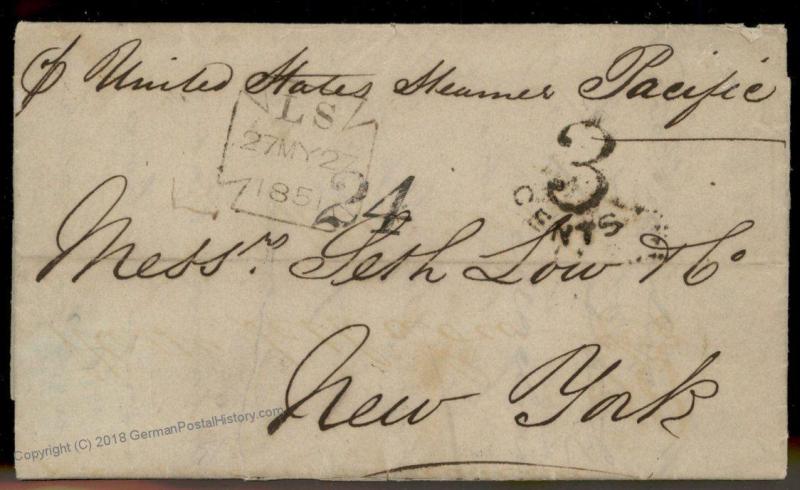 ℘ United States Steamer Pacific
LS
27MY27
1851
24
3
CENTS
Mess.rs Seth Low & Co
New York
Copyright (C) 2018 GermanPostalHistory.com